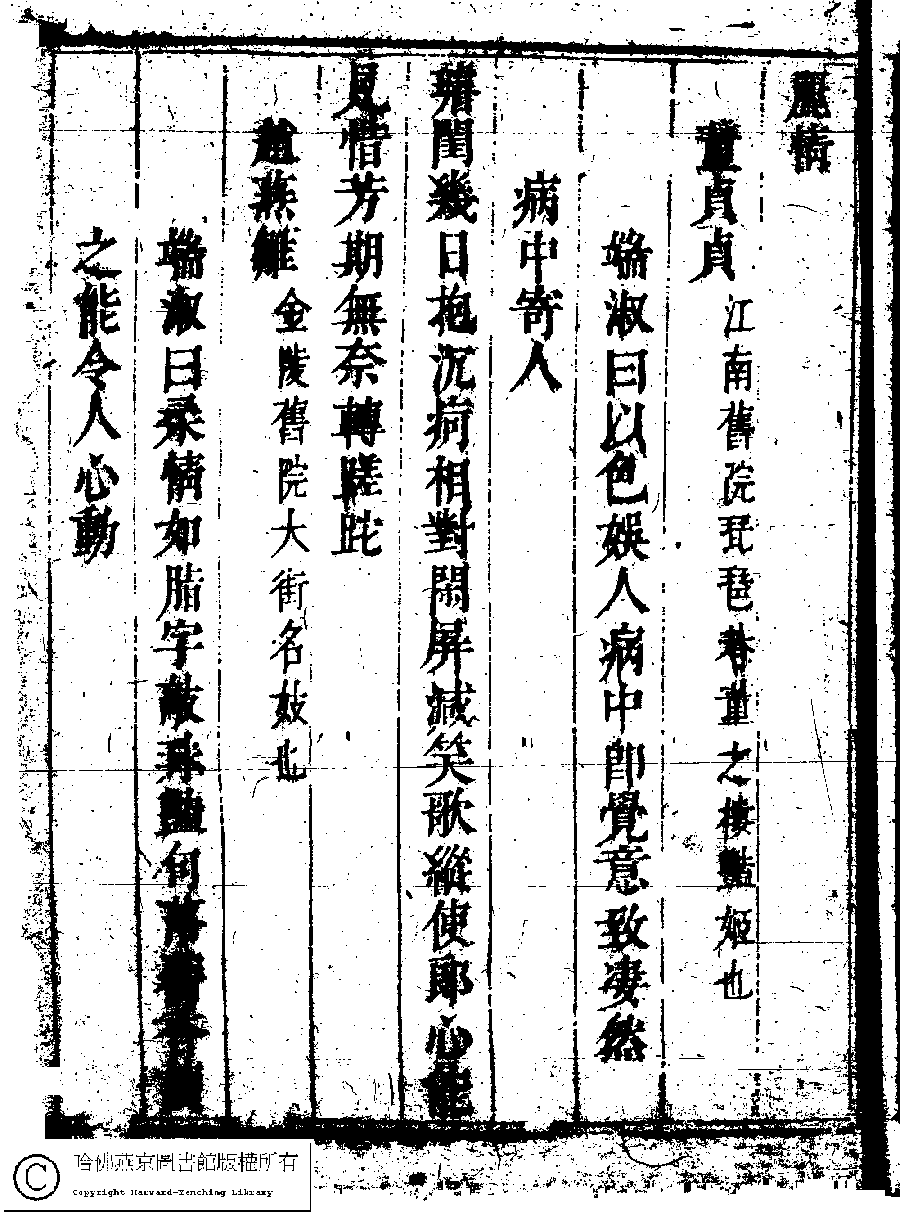 麗情
董貞貞 江南舊院琵琶巷董之棲豔姬也
端淑曰以色娛人病中卽覺意致凄然
病中寄人
閨幾日抱沉痾相對閑屏減笑歌縱使郎心能
見惜芳期無奈轉蹉跎
趙燕雛 金陵舊院大街名妓也
端淑曰柔情如脂字敲珠豔句
之能令人心動
哈佛燕京圖書館版權所有
Copyright Harward-Yenching Library